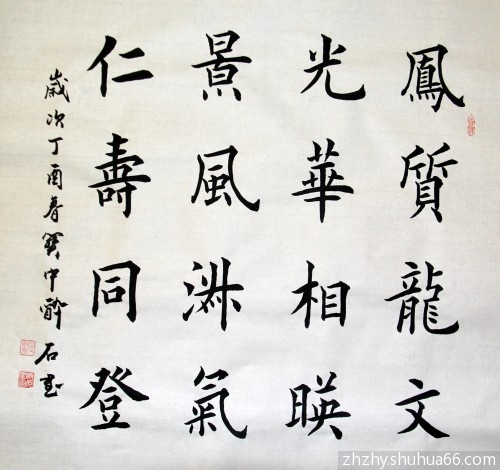 鳳質龍文
光華相暎
景風淑氣
仁壽同登
歲次丁酉春寶中醉石書
zhzhy.shuhua66.com